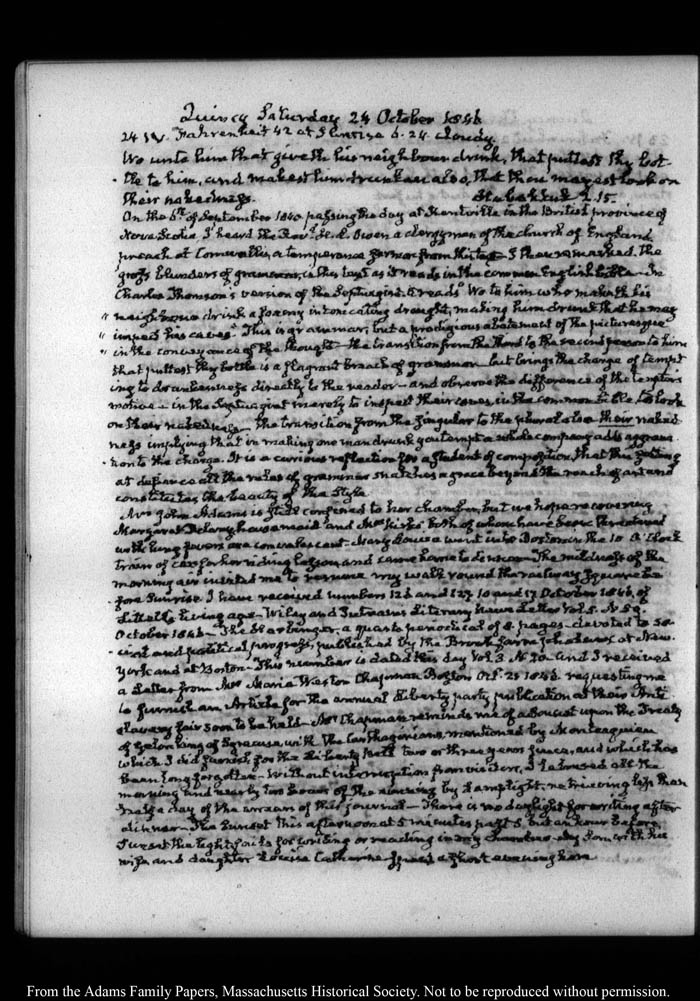 Quincy Saturday 24 October 1846
24 IV. Fahrenheit 42 at Sunrise 6. 24 cloudy.
Wo unto him that giveth his neighbour drink, that puttest thy bot-
tle to him, and makest him drunken also, that thou mayest look on
their nakedness. Habakkuk 2.15.
On the 6th of September 1840 passing the day at Kentville in the British province of
Nova Scotia, I heard the Revd. Owen a clergyman of the church of England
preach at Cornwallis, a temperance sermon from this text I then remarked, the
gross blunders of grammar, in this text as it reads in the common English bible. In
Charles Thomson's version of the Septuagint it reads "Wo to him who maketh his
" neighbour drink a foamy intoxicating draught, making him drunk that he may
" inspect his caves" This is grammar, but a prodigious abatement of the picturesque
" in the conveyance of the thought the transition from the third to the second person to him
that puttest thy bottle is a flagrant breach of grammar but brings the charge of tempt
ing to drunkenness directly to the reader and observe the difference of the tempters
motive in the Septuagint merely to inspect their caves, in the common bible to look
on their nakedness The transition from the singular to the plural also their naked
ness implying that in making one man drunk you tempt a whole company adds aggrava
tion to the charge. It is a curious reflection for a student of composition, that this setting
at defiance all the rules of grammar snatches a grace beyond the reach of art and
constitutes the beauty of the style.
Mrs John Adams is still confined to her chamber, but we hope recovering
Margaret Delany housemaid and Mrs both of whom have been threatened
with lung fevers are convalescent Mary Louisa went into Boston in the 10 O'Clock
train of cars for her riding lesson and came home to dinner The mildness of the
morning air invited me to resume my walk round the railway square be
fore Sunrise. I have received numbers 126 and 127. 10 and 17 October 1846, of
Littell's living age Wiley and Putnam's Literary News Letter Vol 5. N 59.
October 1846 The Harbinger, a quarto periodical of 8. pages devoted to so-
cial and political progress, published by the Brook farm phalanx at New-
York and at Boston This number is dated this day Vol 3. N 20 and I received
a Letter from Mrs Maria Weston Chapman Boston Octr. 23 1846 requesting me
to furnish an Article for the annual Liberty party publication at their Anti
slavery fair soon to be held Mrs Chapman reminds me of a upon the Treaty
of Gelon king of Syracuse with the Carthaginians, mentioned by Montesquieu
which I did furnish for the Liberty Bell two or three years since, and which has
been long forgotten Without interruption from visitors, I devoted all the
morning and nearly two hours of the evening by lamplight, retrieving less than
half a day of the arrears of this journal There is no daylight for writing after
dinner The sunset this afternoon at 5 minutes past 5, but an hour before
Sunset the light fails for writing or reading in my chamber My Son with his
wife and daughter Louisa Catherine passed a short evening here
From the Adams Family Papers, Massachusetts Historical Society. Not to be reproduced without permission.